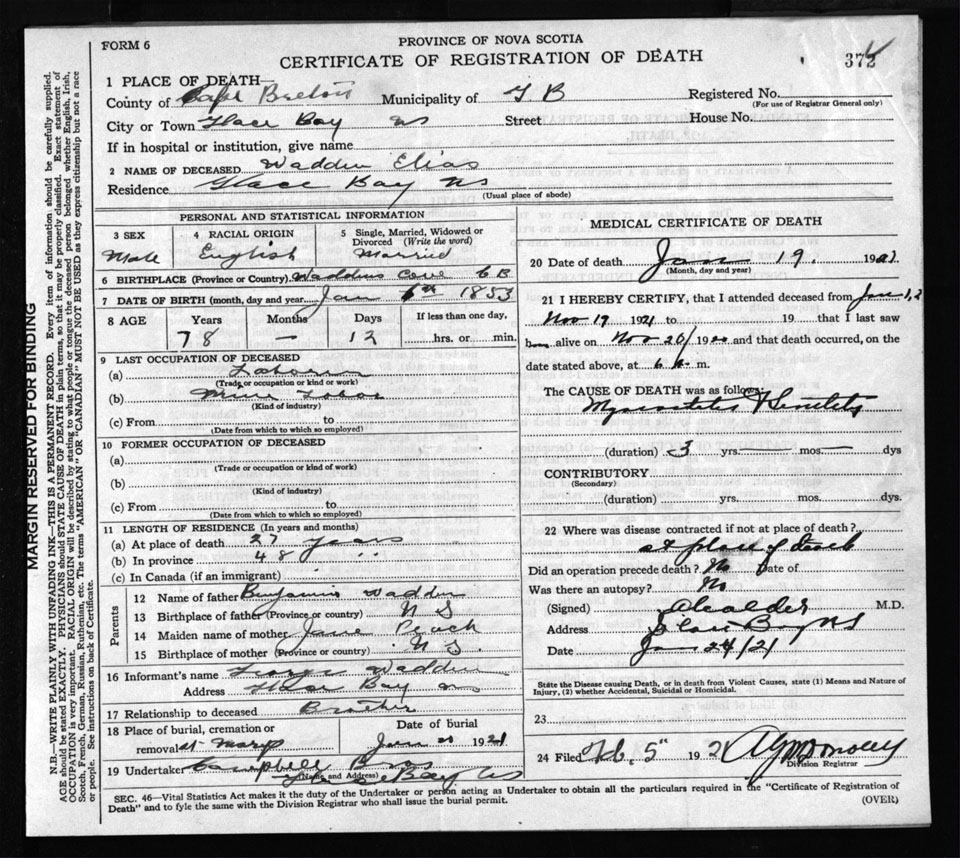 FORM 6
PROVINCE OF NOVA SCOTIA
CERTIFICATE OF REGISTRATION OF DEATH
372
1 PLACE OF DEATH—
County of Cape Breton Municipality of G B Registered No.
(For use of Registrar General only)
City or Town Glace Bay NS Street House No.
If in hospital or institution, give name
2 NAME OF DECEASED Wadden Elias
Residence Glace Bay NS
(Usual place of abode)
PERSONAL AND STATISTICAL INFORMATION
3 SEX
Male
4 RACIAL ORIGIN
English
5 Single, Married, Widowed or Divorced (Write the word)
Married
6 BIRTHPLACE (Province or Country) Waddens Cove C B
7 DATE OF BIRTH (month, day and year) Jan 1853
8 AGE
Years Months Days If less than one day,
78 — 12 hrs. or min.
9 LAST OCCUPATION OF DECEASED
(a)
(Trade or occupation or kind of work)
(b) Mine
(Kind of industry)
(c) From to
(Date from which to which so employed)
10 FORMER OCCUPATION OF DECEASED
(a)
(Trade or occupation or kind of work)
(b)
(Kind of industry)
(c) From to
(Date from which to which so employed)
11 LENGTH OF RESIDENCE (In years and months)
(a) At place of death 27 years
(b) In province 48 " "
(c) In Canada (if an immigrant)
Parents
12 Name of father Benjamin Wadden
13 Birthplace of father (Province or country) N S
14 Maiden name of mother Jane Peach
15 Birthplace of mother (Province or country) N S.
16 Informant's name Wadden
Address Glace Bay NS
17 Relationship to deceased Brother
18 Place of burial, cremation or removal St Marys
Date of burial
Jan 1921
19 Undertaker Campbell
(Name and Address) Bay NS
MEDICAL CERTIFICATE OF DEATH
20 Date of death Jan 19. 1921
(Month, day and year)
21 I HEREBY CERTIFY, that I attended deceased from
Nov 19 1921 to 19 that I last saw
him alive on Nov 20/ 19 and that death occurred, on the
date stated above, at 6 m.
The CAUSE OF DEATH was as follows:
Senility
(duration) 3 yrs. — mos. — dys
CONTRIBUTORY
(Secondary)
(duration) yrs. mos. dys.
22 Where was disease contracted if not at place of death?
at place of death
Did an operation precede death? No Date of
Was there an autopsy? No
(Signed) M.D.
Address Glace Bay NS
Date Jan 24/21
State the Disease causing Death, or in death from Violent Causes, state (1) Means and Nature of
Injury, (2) whether Accidental, Suicidal or Homicidal.
23
24 Filed Feb. 5" 192
Division Registrar
SEC. 46—Vital Statistics Act makes it the duty of the Undertaker or person acting as Undertaker to obtain all the particulars required in the "Certificate of Registration of
Death" and to fyle the same with the Division Registrar who shall issue the burial permit.
(OVER)
MARGIN RESERVED FOR BINDING
N.B.—WRITE PLAINLY WITH UNFADING INK—THIS IS A PERMANENT RECORD. Every item of information should be carefully supplied.
AGE should be stated EXACTLY. PHYSICIANS should STATE CAUSE OF DEATH in plain terms, so that it may be properly classified. Exact statement of
OCCUPATION is very important. RACIAL ORIGIN will be described by stating to what people or tongue the deceased person belonged whether English, Irish,
Scotch, French, German, Russian, Ruthenian, etc. The terms "AMERICAN" or "CANADIAN" MUST NOT BE USED as they express citizenship but not a race
or people. See instructions on back of Certificate.